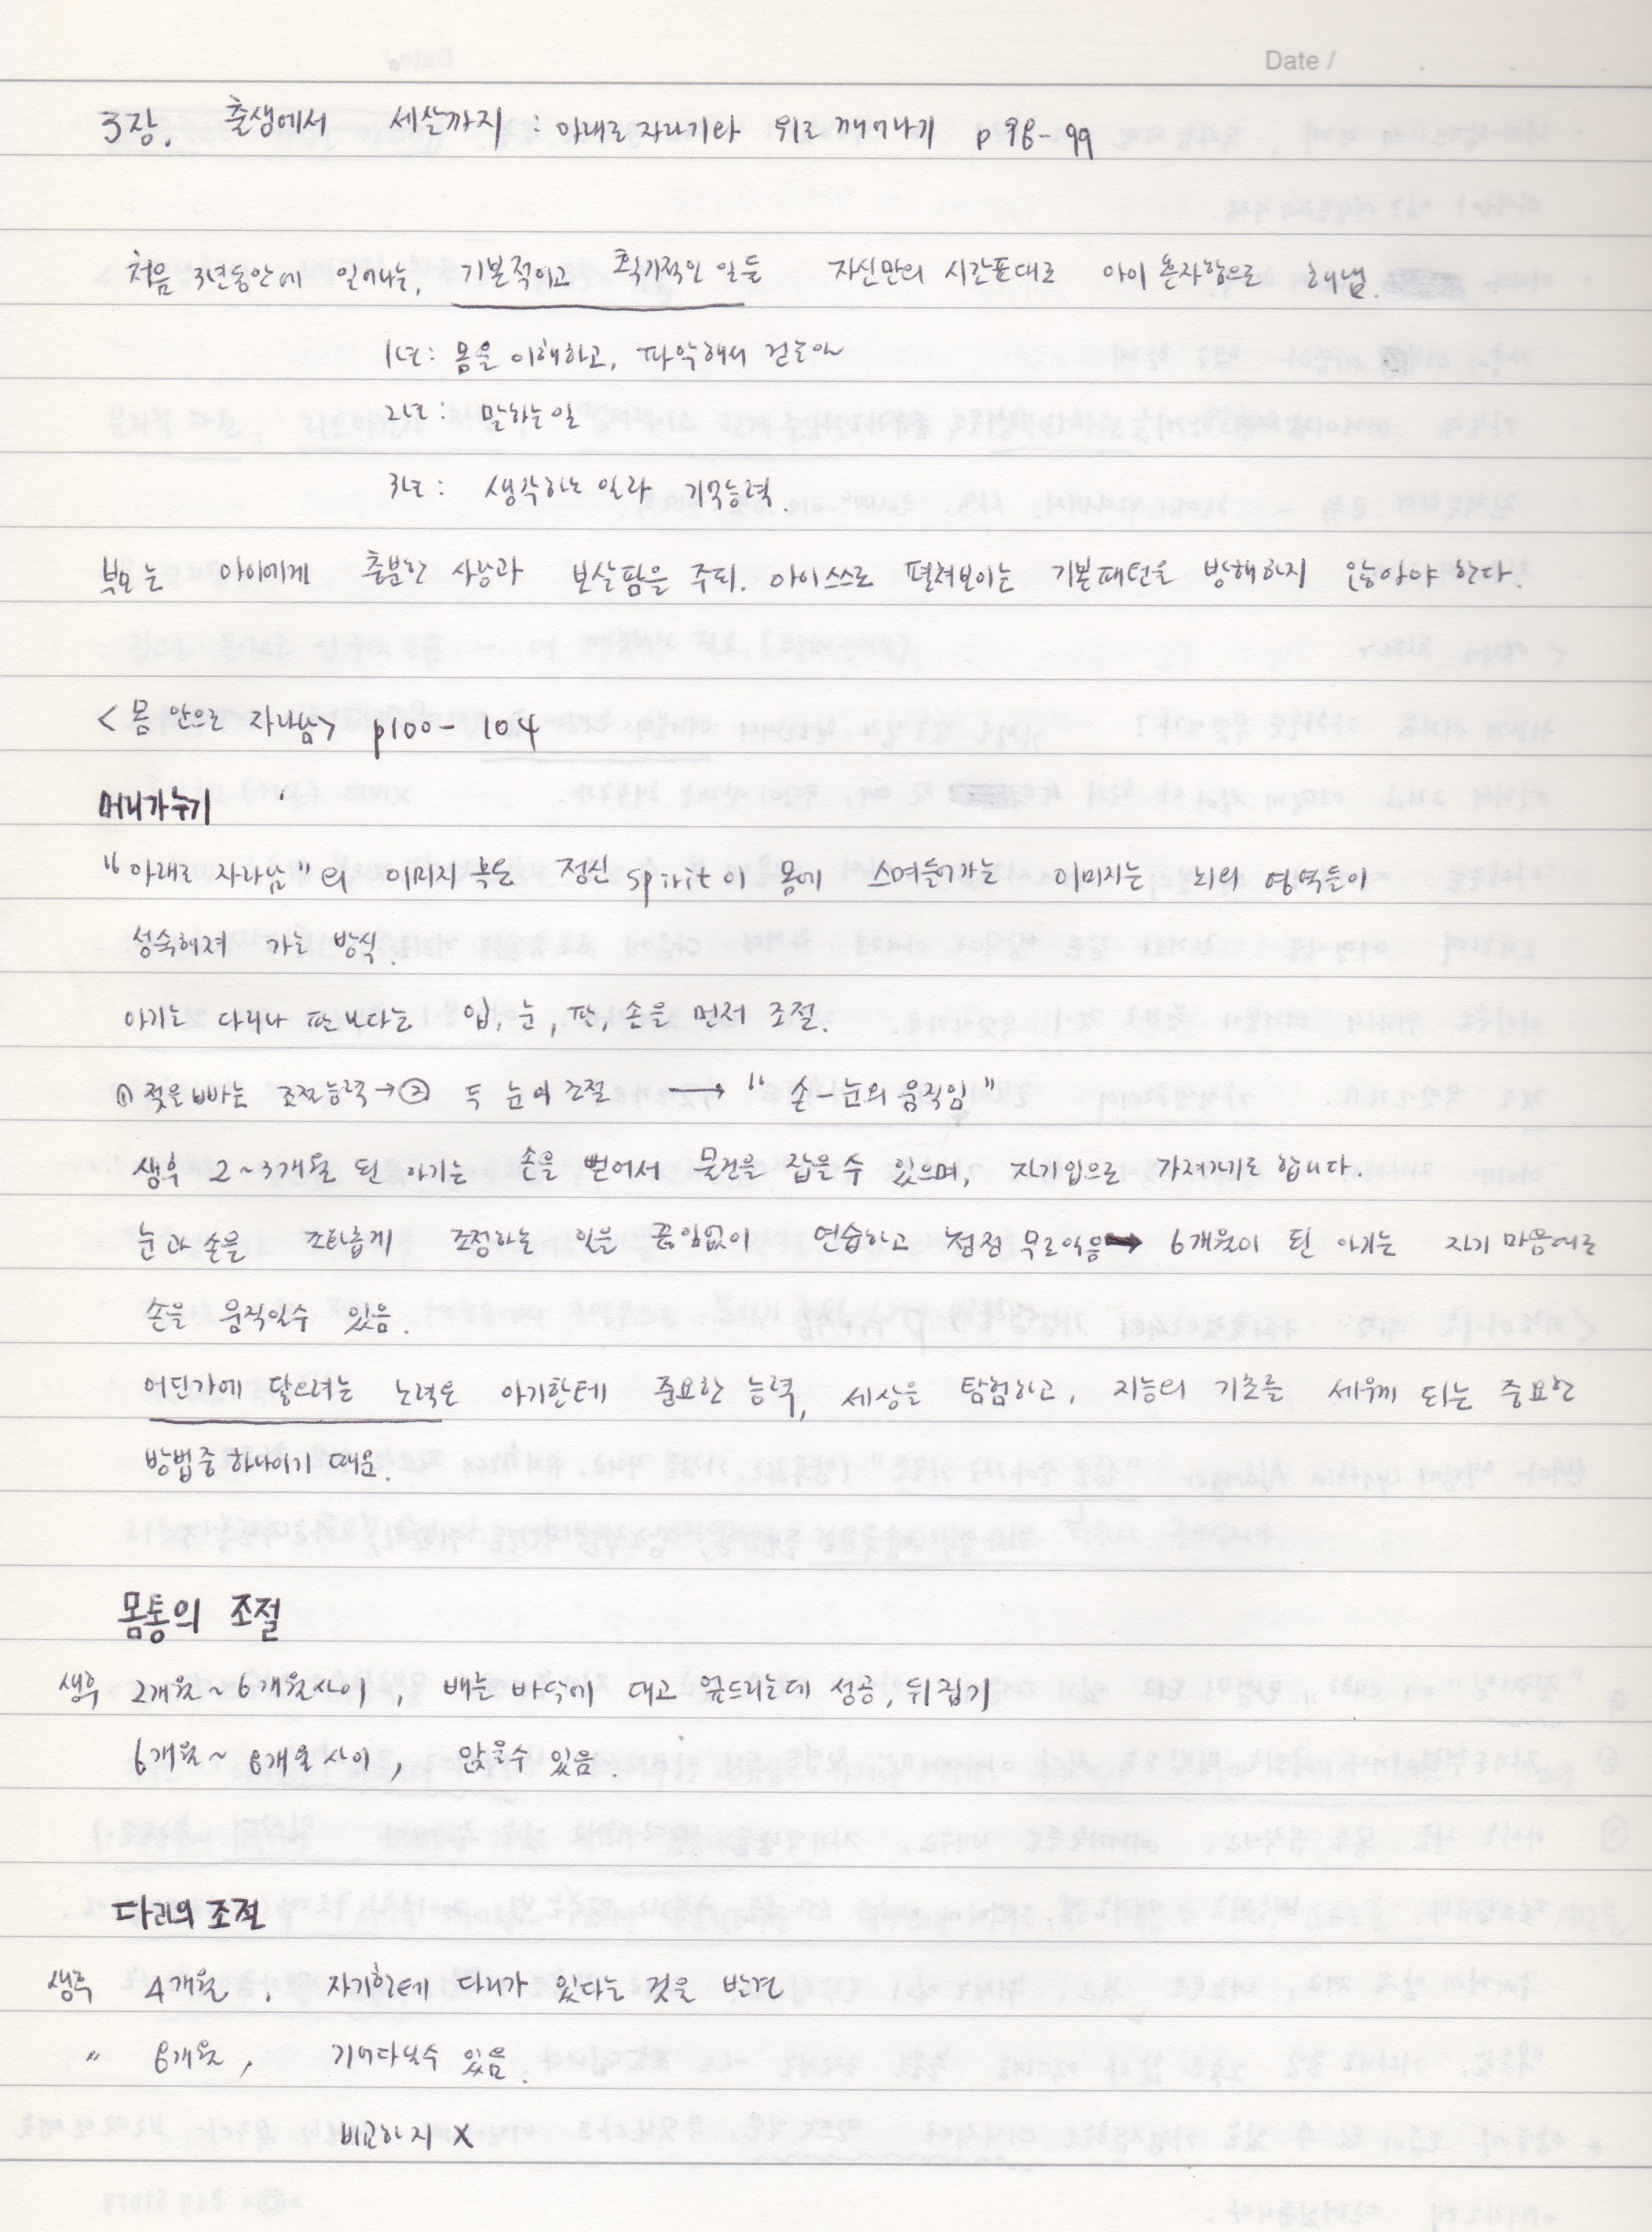 Date /
3장. 출생에서 세살까지 : 아래로 자라기와 위로 깨어나기 p 98-99
처음 3년동안에 일어나는, 기본적이고 획기적인 일들 자신만의 시간표대로 아이 혼자힘으로 해냄.
1년: 몸을 이해하고, 파악해서
2년: 말하는 일
3년: 생각하는 일과 기억능력.
부모는 아이에게 충분한 사랑과 보살핌을 주되. 아이스스로 펼쳐보이는 기본패턴을 방해하지 않아야 한다.
<몸 안으로 자라남> p100- 104
머리가누기
"아래로 자라남"의 이미지 혹은 정신 spirit이 몸에 스며들어가는 이미지는 뇌의 영역들이
성숙해져 가는 방식.
아기는 다리나 보다는 입, 눈, 팔, 손을 먼저 조절.
① 젖을 빠는 조절능력→② 두 눈의 조절 → "손-눈의 움직임"
생후 2~3개월 된 아기는 손을 뻗어서 물건을 잡을 수 있으며, 자기입으로 가져가기도 합니다.
눈과 손을 조화롭게 조정하는 일을 끊임없이 연습하고 점점 무르익음→ 6개월이 된 아기는 자기 마음대로
손을 움직일수 있음.
어딘가에 닿으려는 노력은 아기한테 중요한 능력, 세상을 탐험하고, 지능의 기초를 세우게 되는 중요한
방법중 하나이기 때문.
몸통의 조절
생후 2개월~6개월사이, 배를 바닥에 대고 엎드리는데 성공, 뒤집기
6개월~ 8개월 사이, 앉을수 있음.
다리의 조절
생후 4개월, 자기한테 다리가 있다는 것을 발견
" 8개월, 기어다닐수 있음.
비교하지 X